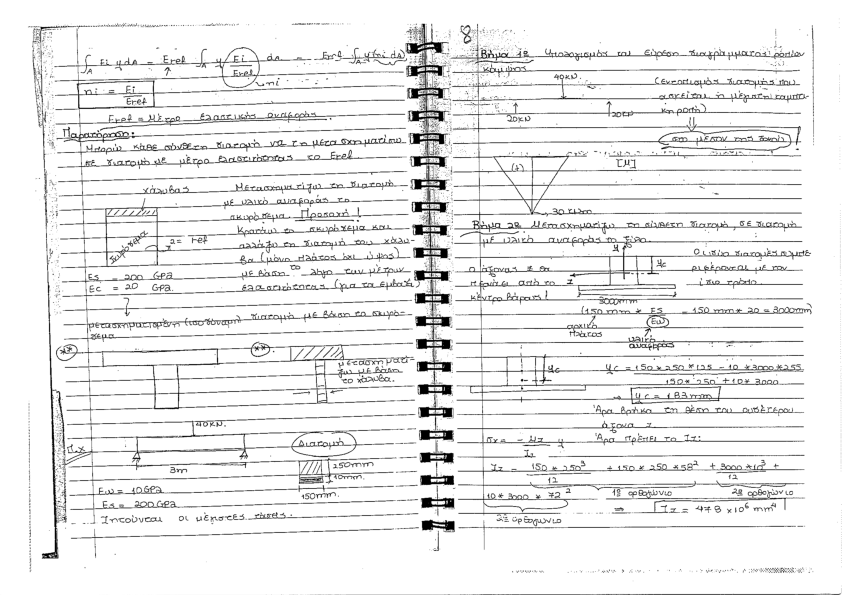 ∫A Ei y dA = Eref ∫A y (Ei/Eref) dA = Eref ∫A y (ni dA)
ni
ni = Ei/Eref
Eref = Μέτρο ελαστικής αναφοράς.
Παρατήρηση:
Μπορώ κάθε σύνθετη διατομή να τη μετασχηματίσω
σε διατομή με μέτρο ελαστικότητας το Eref
χάλυβας
σκυρόδεμα
2 = ref
Μετασχηματίζω τη διατομή
με υλικό αναφοράς το
σκυρόδεμα. Προσοχή!
Κρατάω το σκυρόδεμα και
αλλάζω τη διατομή του χάλυ-
βα (μόνο πλάτος όχι ύψος)
με βάση το λόγο των μέτρων
ελαστικότητας (για τα εμβαδά)
Es = 200 GPa
Ec = 20 GPa
μετασχηματισμένη (ισοδύναμη) διατομή με βάση το σκυρό-
δεμα
*
**
μετασχηματί-
ζω με βάση
το χάλυβα.
Π.χ
40KN.
3m
Διατομή
250mm
10mm.
150mm.
Εω = 10GPa
Es = 200GPa
Ζητούνται οι μέγιστες τάσεις.
8
Βήμα 1º Υπολογισμός του εύρεση διαγράμματος ροπών
κάμψης
40KN
20KN
20KN
(εντοπισμός διατομής που
ασκείται η μέγιστη καμπτι-
κη ροπή)
στη μέσον της δοκού!
(+)
[M]
30 KNm.
Βήμα 2º Μετασχηματίζω τη σύνθετη διατομή, σε διατομή
με υλικό αναφοράς το ξύλο.
ο άξονας z θα
περνάει από το
κέντρο βάρους!
y
z
yc
3000mm
Οι δύο διατομές συμπε-
ριφέρονται με τον
ίδιο τρόπο.
(150 mm * Es/Εω = 150 mm * 20 = 3000mm)
αρχικό
πλάτος
υλικό
αναφοράς
yc
yc = 150*250*125 - 10*3000*255
150*250 + 10*3000
→ yc = 183mm
Άρα βρήκα τη θέση του ουδέτερου
άξονα z
σx = - Mz/Iz y
Άρα πρέπει το Iz:
Iz = 150*250³/12 + 150*250*58² + 3000*10³/12 +
1º ορθογώνιο
2º ορθογώνιο
10*3000*72²
2º ορθογώνιο
⇒ Iz = 478 x10⁶ mm⁴